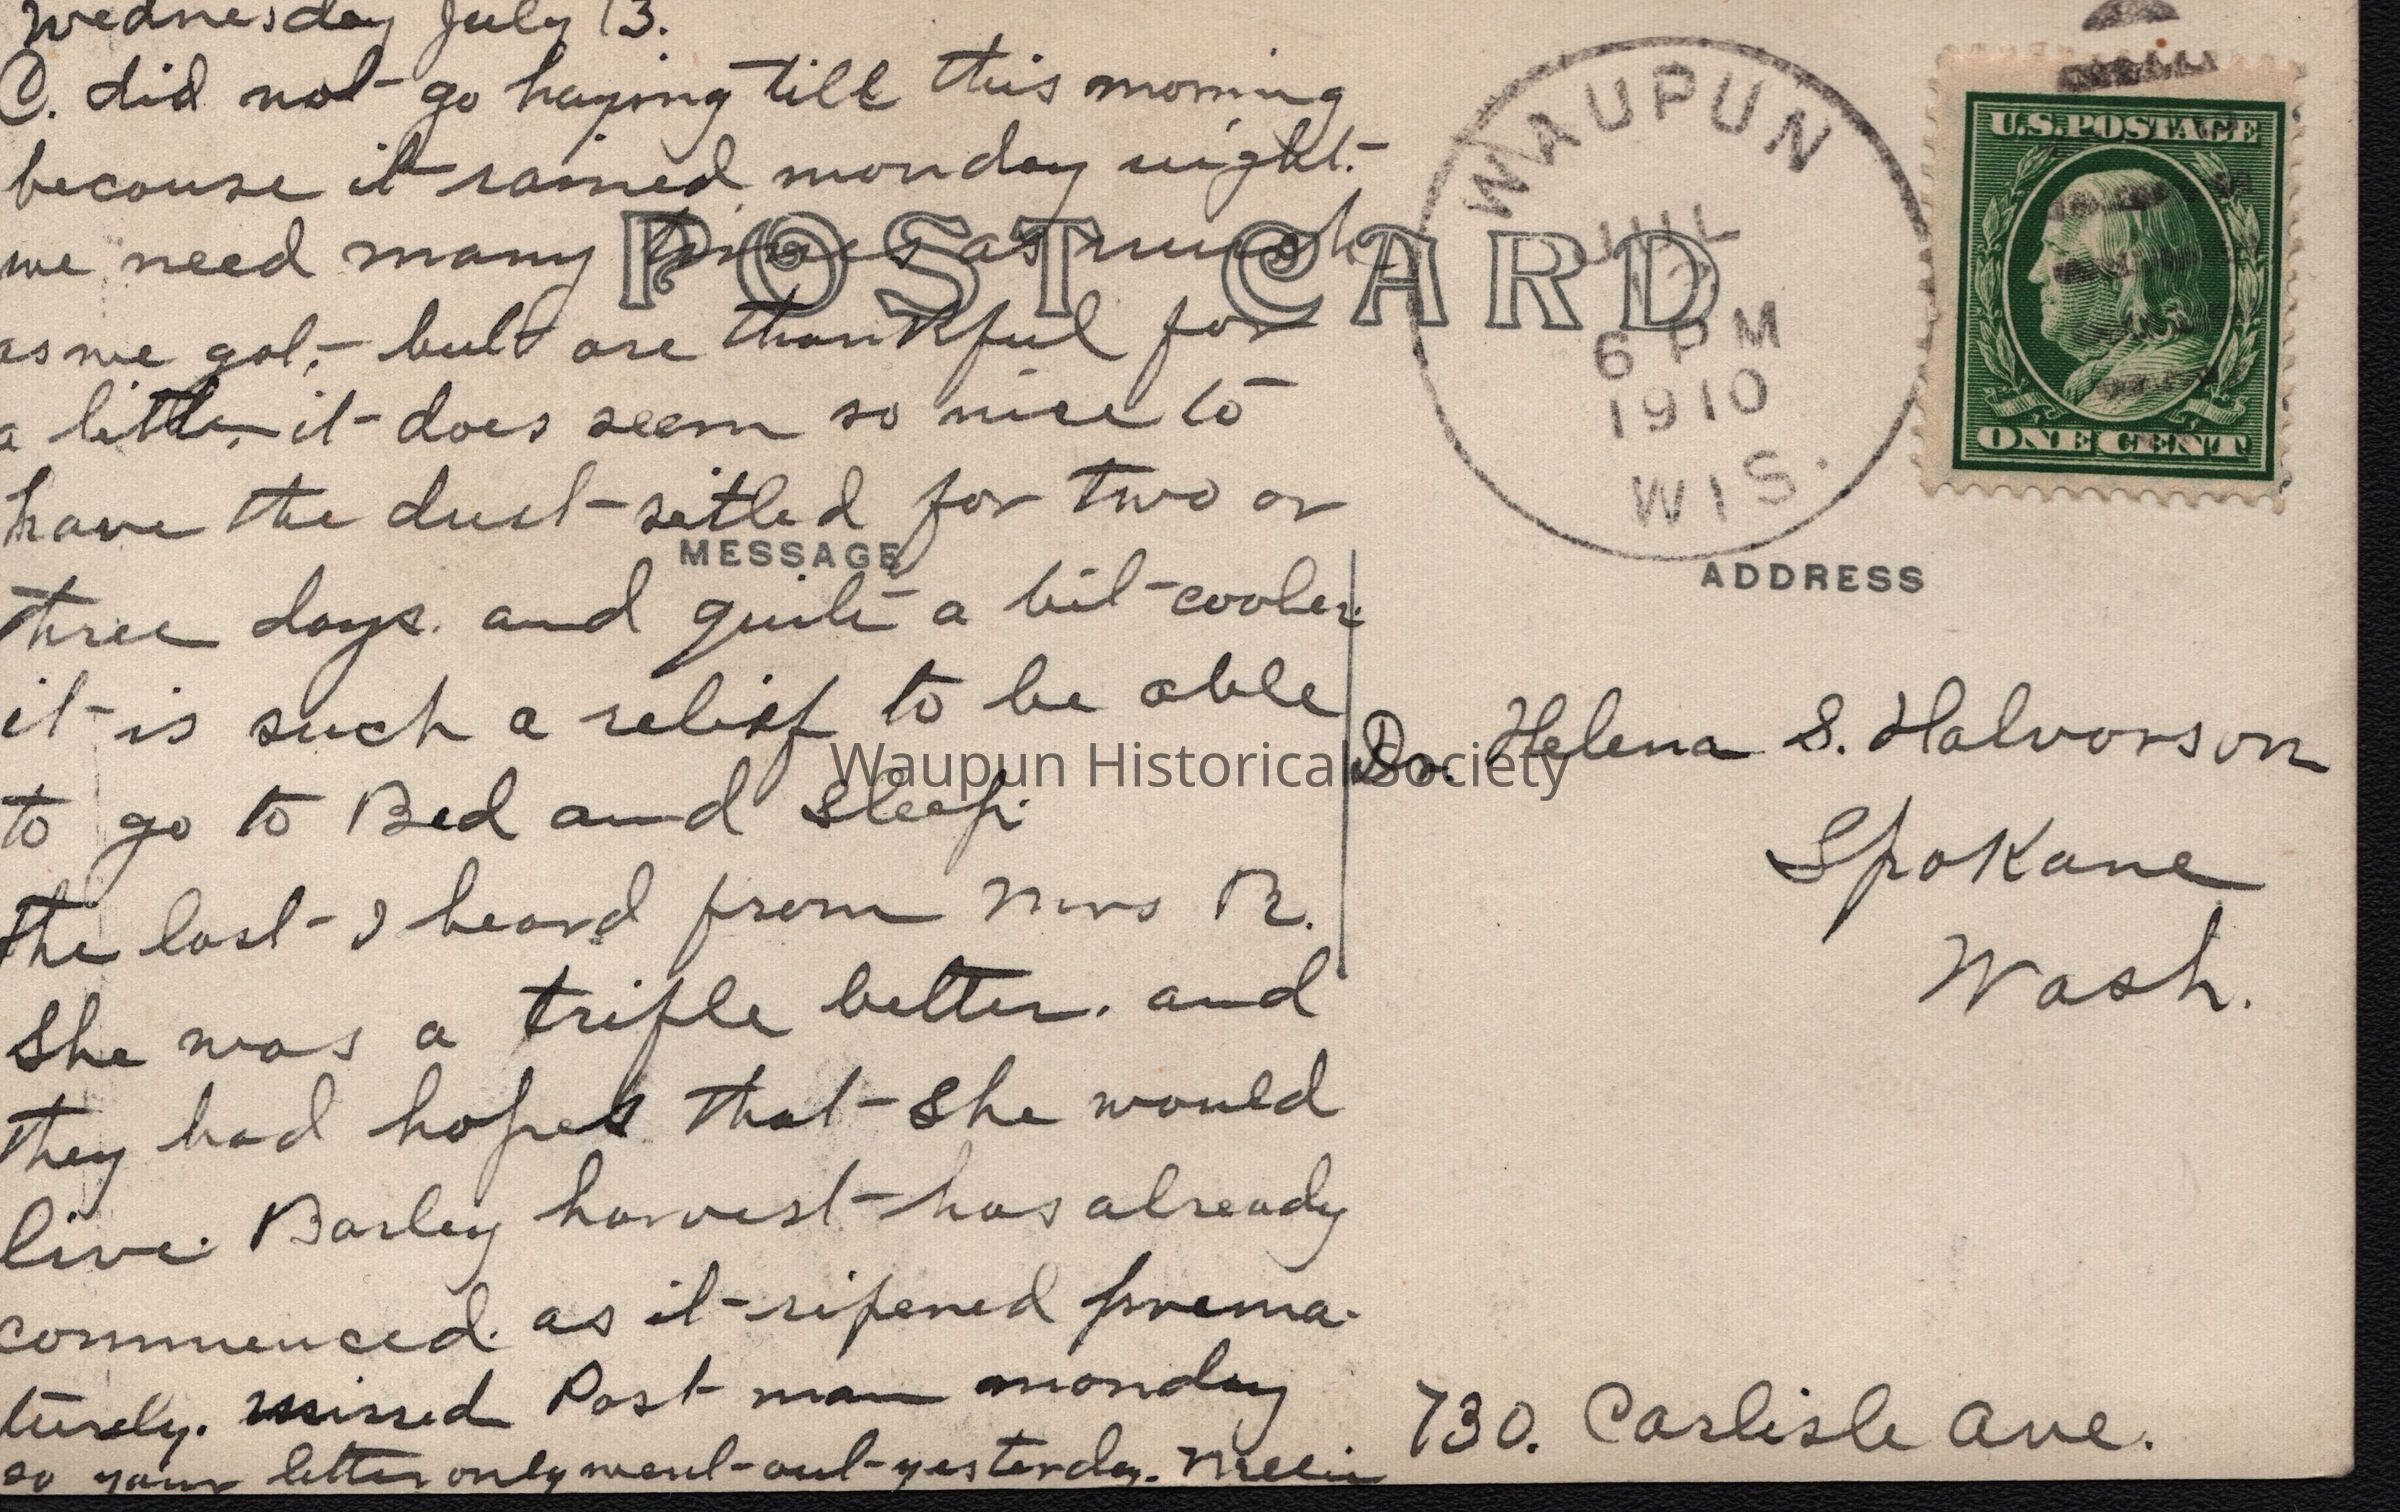 Wednesday July 13.
C. did not go haying till this morning
because it rained monday night.
we need many times as much
as we got, but are thankful for
a little, it does seem so nice to
have the dust setled for two or
three days. and quite a bit cooler.
it is such a relief to be able
to go to Bed and sleep.
the last I heard from Mrs R.
She was a trifle better. and
they had hopes that she would
live. Barley harvest has already
commenced. as it ripened prema-
turely. missed Post man monday
so your letter only went out yesterday. Nellie
POST CARD
MESSAGE
WAUPUN
JUL
6 PM
1910
WIS.
U.S. POSTAGE
ONE CENT
ADDRESS
Dr. Helena S. Halvorson
Spokane
Wash.
730. Carlisle Ave.
Waupun Historical Society